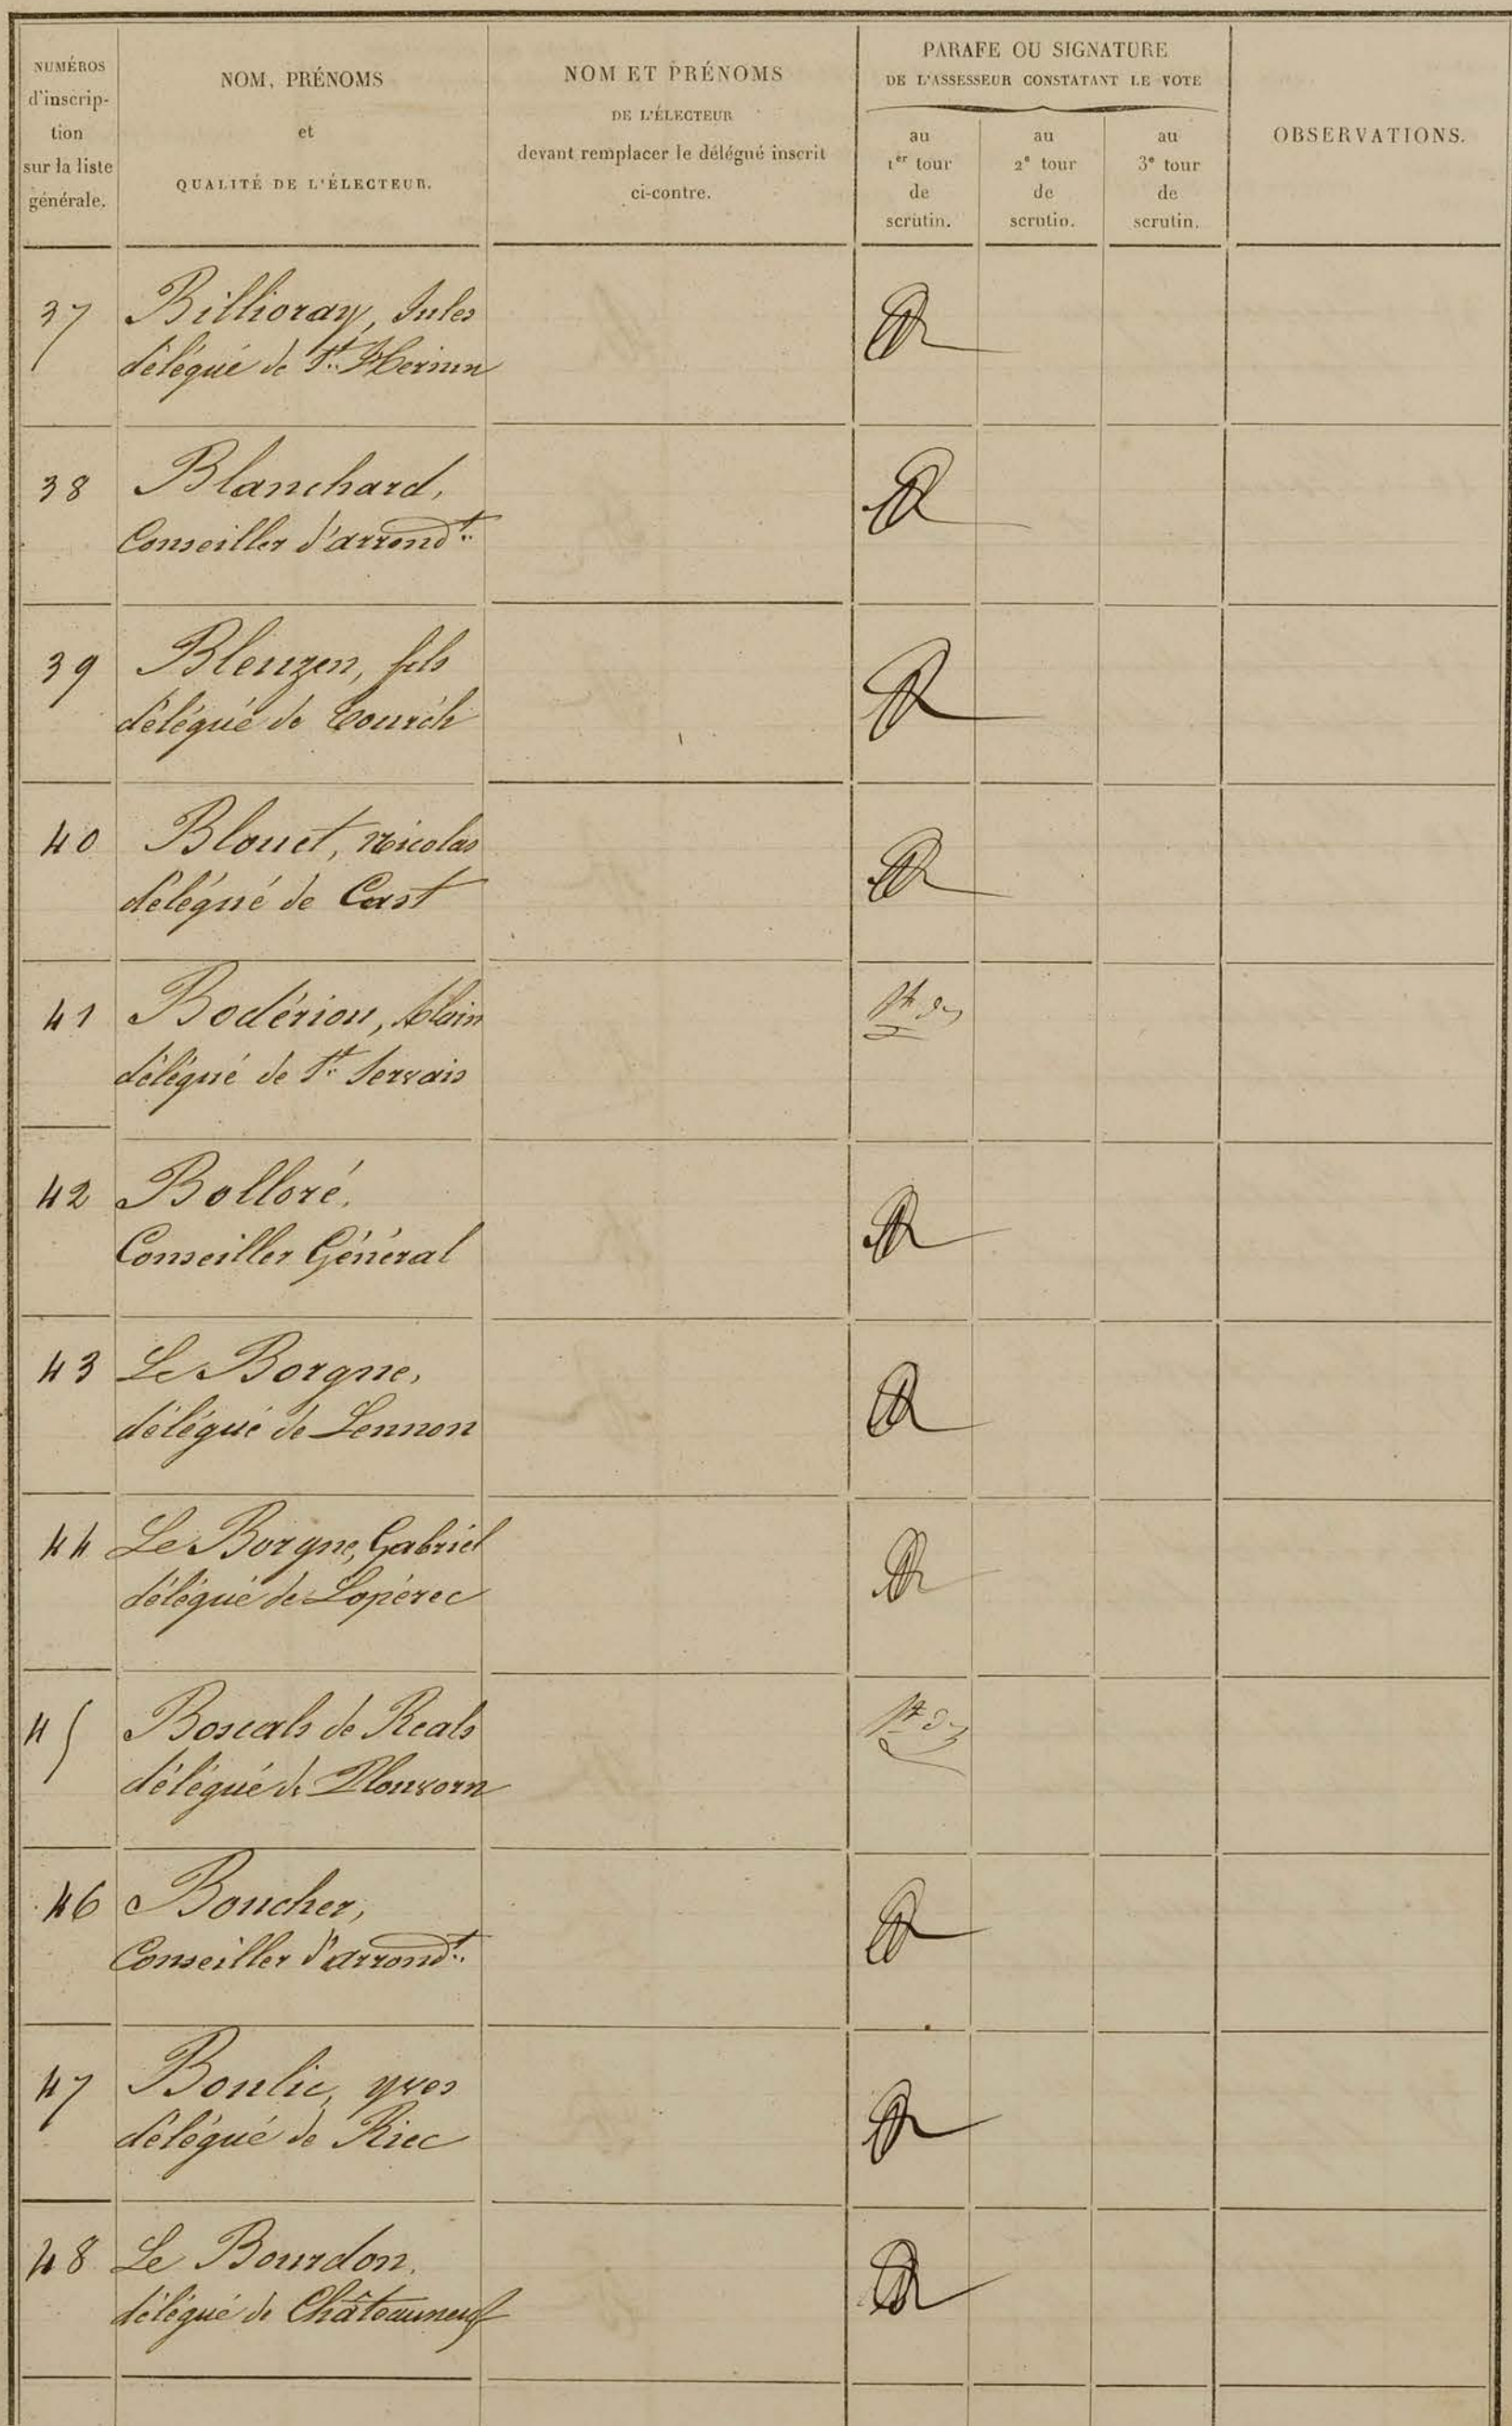 NUMÉROS
d'inscrip-
tion
sur la liste
générale.
NOM, PRÉNOMS
et
QUALITÉ DE L'ÉLECTEUR.
NOM ET PRÉNOMS
DE L'ÉLECTEUR
devant remplacer le délégué inscrit
ci-contre.
PARAFE OU SIGNATURE
DE L'ASSESSEUR CONSTATANT LE VOTE
au
1er tour
de
scrutin.
au
2e tour
de
scrutin.
au
3e tour
de
scrutin.
OBSERVATIONS.
37 Billioray, Jules
délégué de St. Hernin
38 Blanchard,
Conseiller d'arrondt.
39 Bleuzen, fils
délégué de Tourch
40 Blouet, Nicolas
délégué de Cast
41 Bodériou, Alain
délégué de St. Servais
42 Bolloré,
Conseiller Général
43 Le Borgne,
délégué de Lennon
44 Le Borgne, Gabriel
délégué de Lopérec
45 Boscals de Reals
délégué de Plouvorn
46 Boucher,
Conseiller d'arrondt.
47 Boulic, yves
délégué de Riec
48 Le Bourdon,
délégué de Châteauneuf